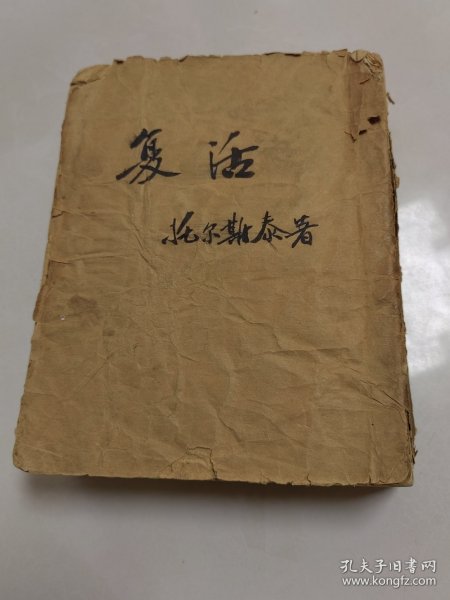 复活
托尔斯泰著
孔夫子旧书网
www.kongfz.com